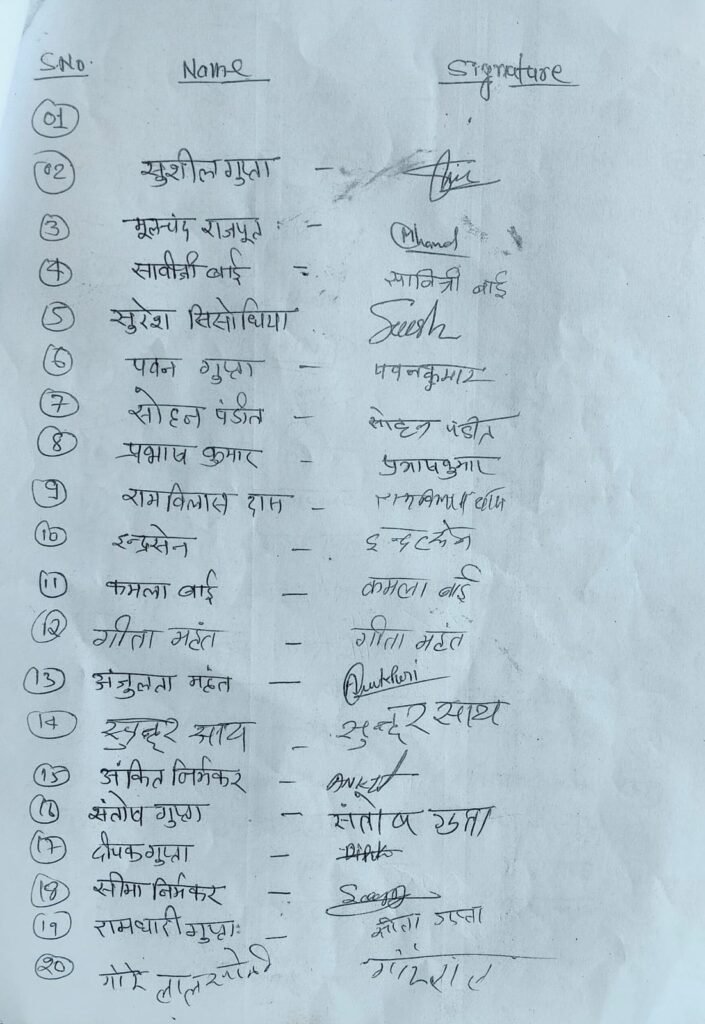 S.No. Name Signature
01
02 सुशील गुप्ता -
3 मूलचंद राजपूत :- Mhand
4 सावीत्री बाई - सावित्री बाई
5 सुरेश सिसोधिया Suresh
6 पवन गुप्ता - पवनकुमार
7 सोहन पंडीत - सोहन पंडीत
8 प्रभाष कुमार - प्रभाषकुमार
9 रामविलास दास -
10 इन्द्रसेन - इन्द्रसेन
11 कमला बाई - कमला बाई
12 गीता महंत - गीता महंत
13 अंजुलता महंत -
14 सुन्दर साय - सुन्दर साय
15 अंकित निर्मकर - ANKIT
16 संतोष गुप्ता - संतोष गुप्ता
17 दीपक गुप्ता -
18 सीमा निर्मकर -
19 रामधारी गुप्ता: - सीता गुप्ता
20 गोरे लाल